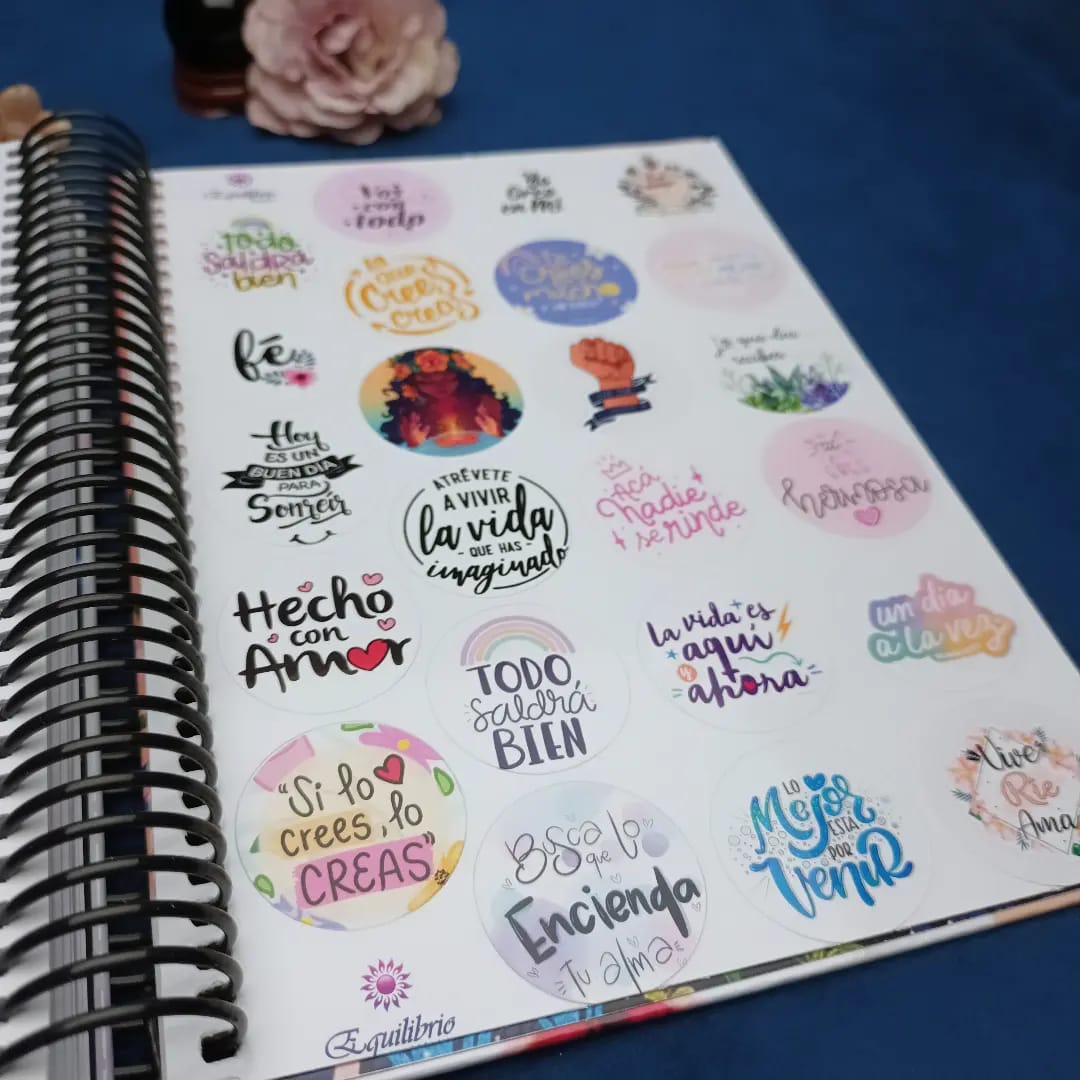 Equilibrio
Voy
con
todo
Yo
Creo
en Mí
Todo
Saldrá
bien
Lo
que
Crees
creas
mucho
fé
lo que das
recibes
Hoy
ES UN
BUEN DIA
PARA
Sonreír
ATRÉVETE
A VIVIR
la vida
- QUE HAS -
imaginado
Acá
Nadie
se rinde
hermosa
Hecho
con
Amor
TODO
Saldrá
BIEN
La vida es
aquí
y
ahora
un día
a la vez
"Si lo
crees, lo
CREAS"
Busca lo
que
Encienda
Tu alma
LO
Mejor
ESTÁ
POR
Venir
Vive
Ríe
Ama
Equilibrio